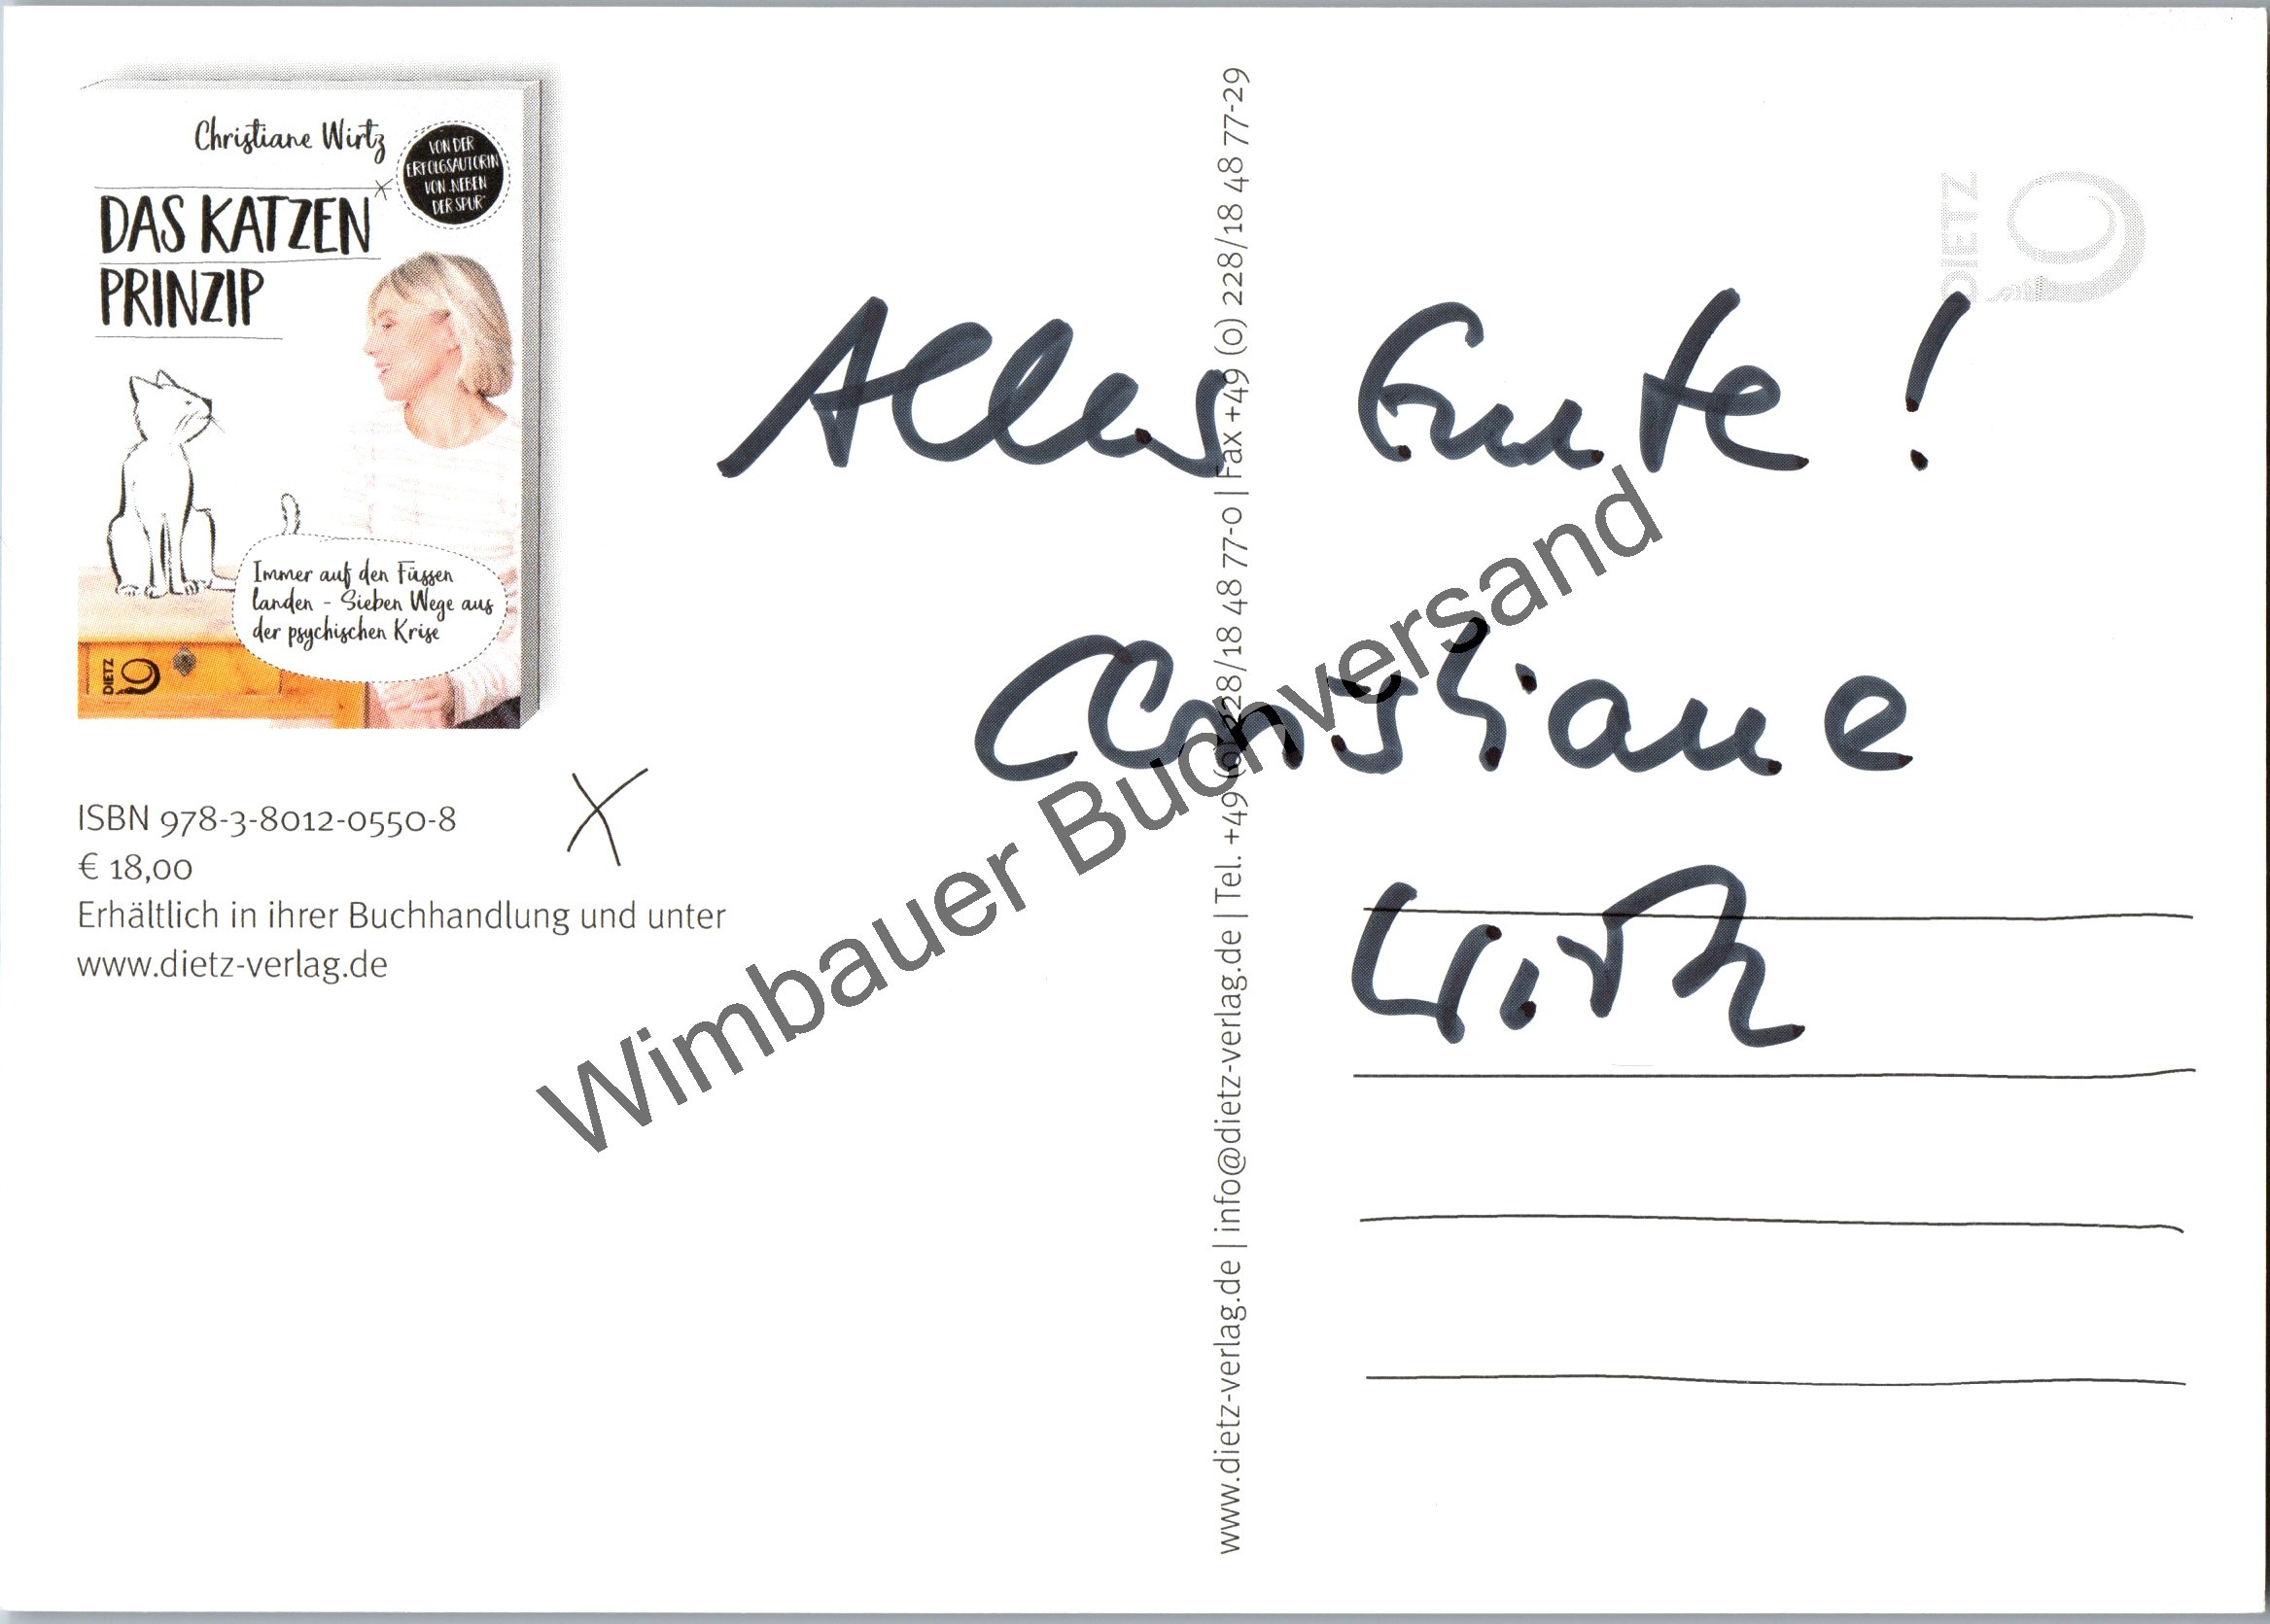 Christiane Wirtz
VON DER
ERFOLGSAUTORIN
VON „NEBEN
DER SPUR“
DAS KATZEN
PRINZIP
Immer auf den Füssen
landen - Sieben Wege aus
der psychischen Krise
DIETZ
ISBN 978-3-8012-0550-8
€ 18,00
Erhältlich in ihrer Buchhandlung und unter
www.dietz-verlag.de
www.dietz-verlag.de | info@dietz-verlag.de | Tel. +49 (0) 228/18 48 77-0 | Fax +49 (0) 228/18 48 77-29
DIETZ
Alles Gute !
Christiane
Wirtz
Wimbauer Buchversand